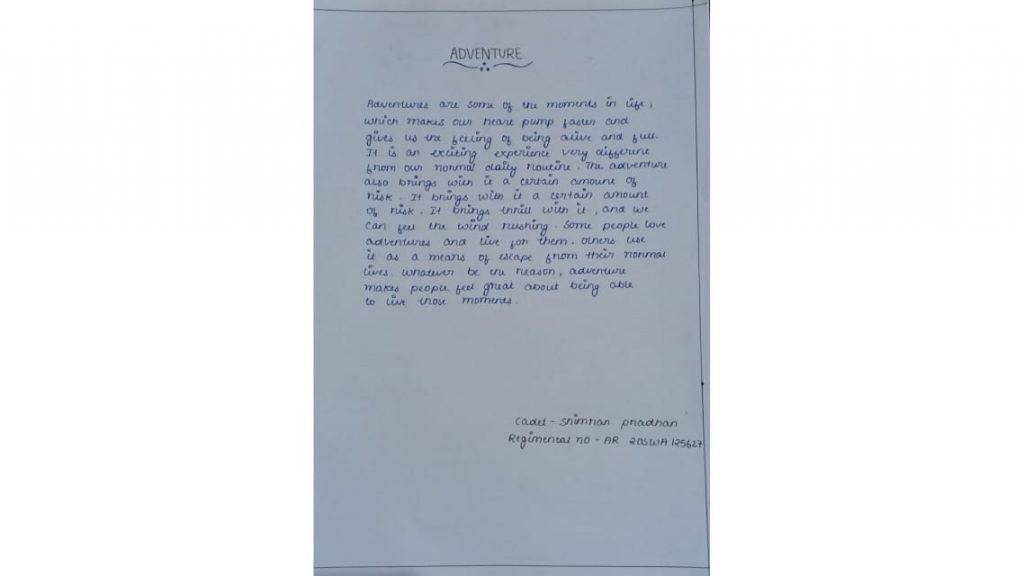 ADVENTURE
Adventures are some of the moments in life,
which makes our heart pump faster and
gives us the feeling of being alive and full.
It is an exciting experience very different
from our normal daily routine. The adventure
also brings with it a certain amount of
risk. It brings with it a certain amount
of risk. It brings thrill with it, and we
can feel the wind rushing. Some people love
adventures and live for them. Others use
it as a means of escape from their normal
lives. Whatever be the reason, adventure
makes people feel great about being able
to live those moments.
Cadet - Shimran Pradhan
Regimental no - AR 20SWA 125627